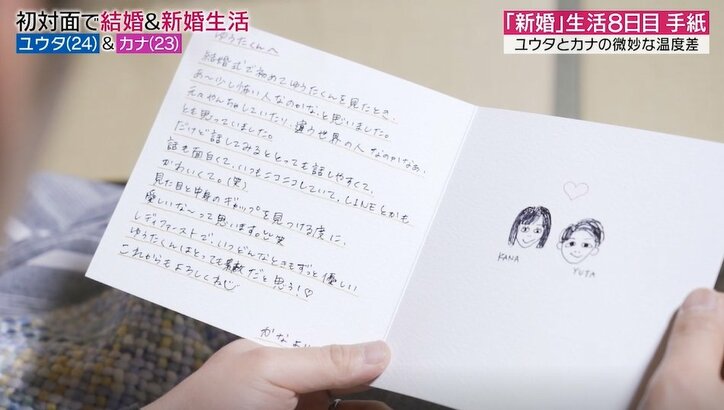 初対面で結婚&新婚生活
ユウタ(24)&カナ(23)
「新婚」生活8日目 手紙
ユウタとカナの微妙な温度差
ゆうたくんへ
結婚式で初めてゆうたくんを見たとき、
あ〜少し 人なのかな、と思いました。
元々やんちゃしていたり、違う世界の人なのかなぁ、
とも思っていました。
だけど話してみるととっても話しやすくて、
話も面白くて、いつもニコニコしていて、LINEとかも
かわいくて。(笑)
見た目と中身のギャップを見つける度に、
愛しいな〜って思います。笑
レディファーストで、いつどんなときもずっと優しい
ゆうたくんはとっても素敵だと思う!♡
これからもよろしくね
かなよ
KANA
YUTA